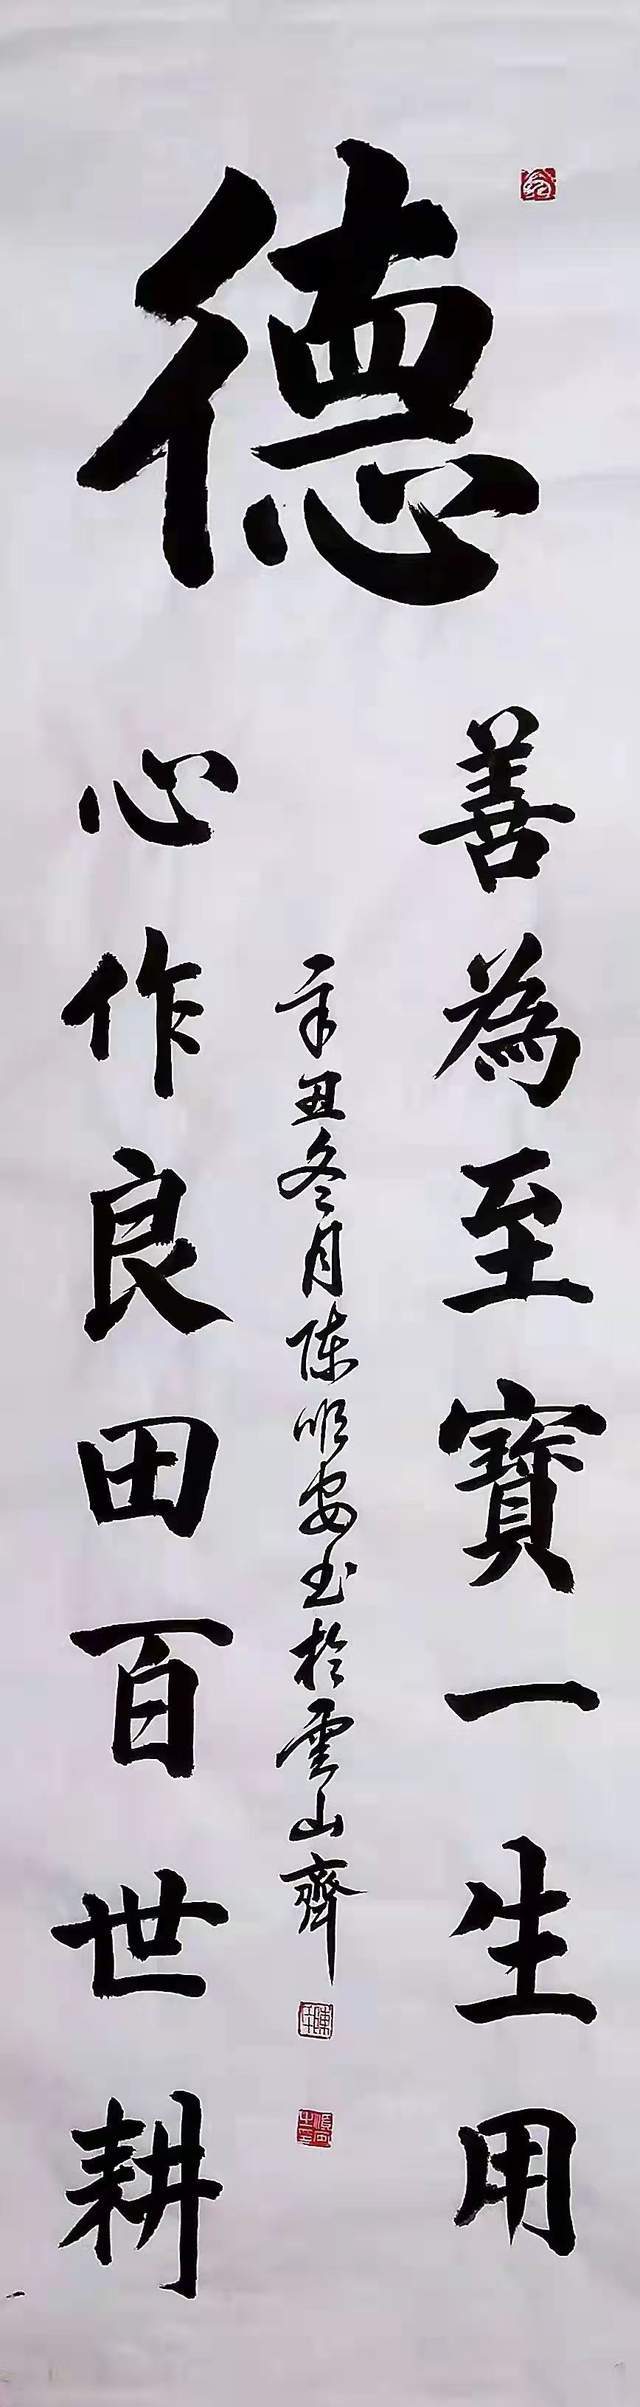 德
善為至寶一生用
心作良田百世耕
辛丑冬月陈顺安书於雲山齊